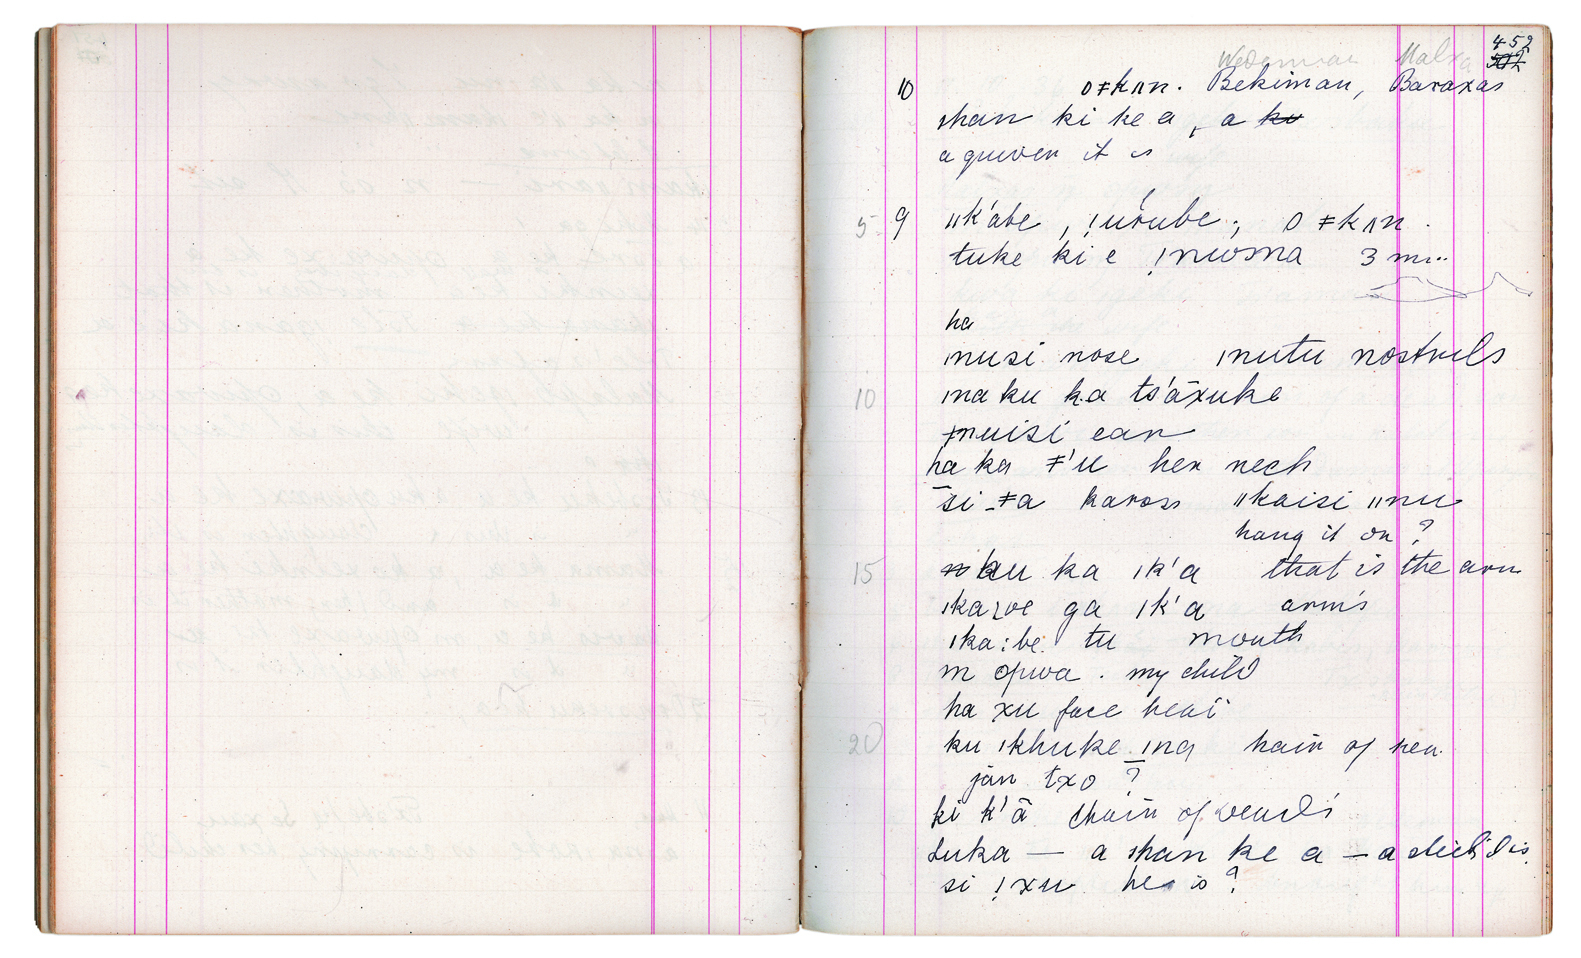 452
10 o ǂkʌn. Bekiman, Baraxas
ǀhan ki ke a, a ku
a quiver it is
5 9 ǁk'abe, ǃurube; o ǂkʌn.
tuke ki e ǃnwona 3 m..
ha
ǀnusi nose ǀnutu nostrils
10 ǀna ku ka ts'āxuke
ǂnuisi ear
ha ka ǂ'u her neck
si ǂa kaross ǁkaisi ǁnu
hang it on ?
15 ku ka ǀk'a that is the arm
ǀkazoe ga ǀk'a arms
ǀka:be tu mouth
m opwa . my child
ha xu face
20 ku ǀkhuke ǀna hair of hea
jän txo ?
ki k'ā chain of
ǀuka — a ǀhan ke a — a is
si ǃxu he is ?